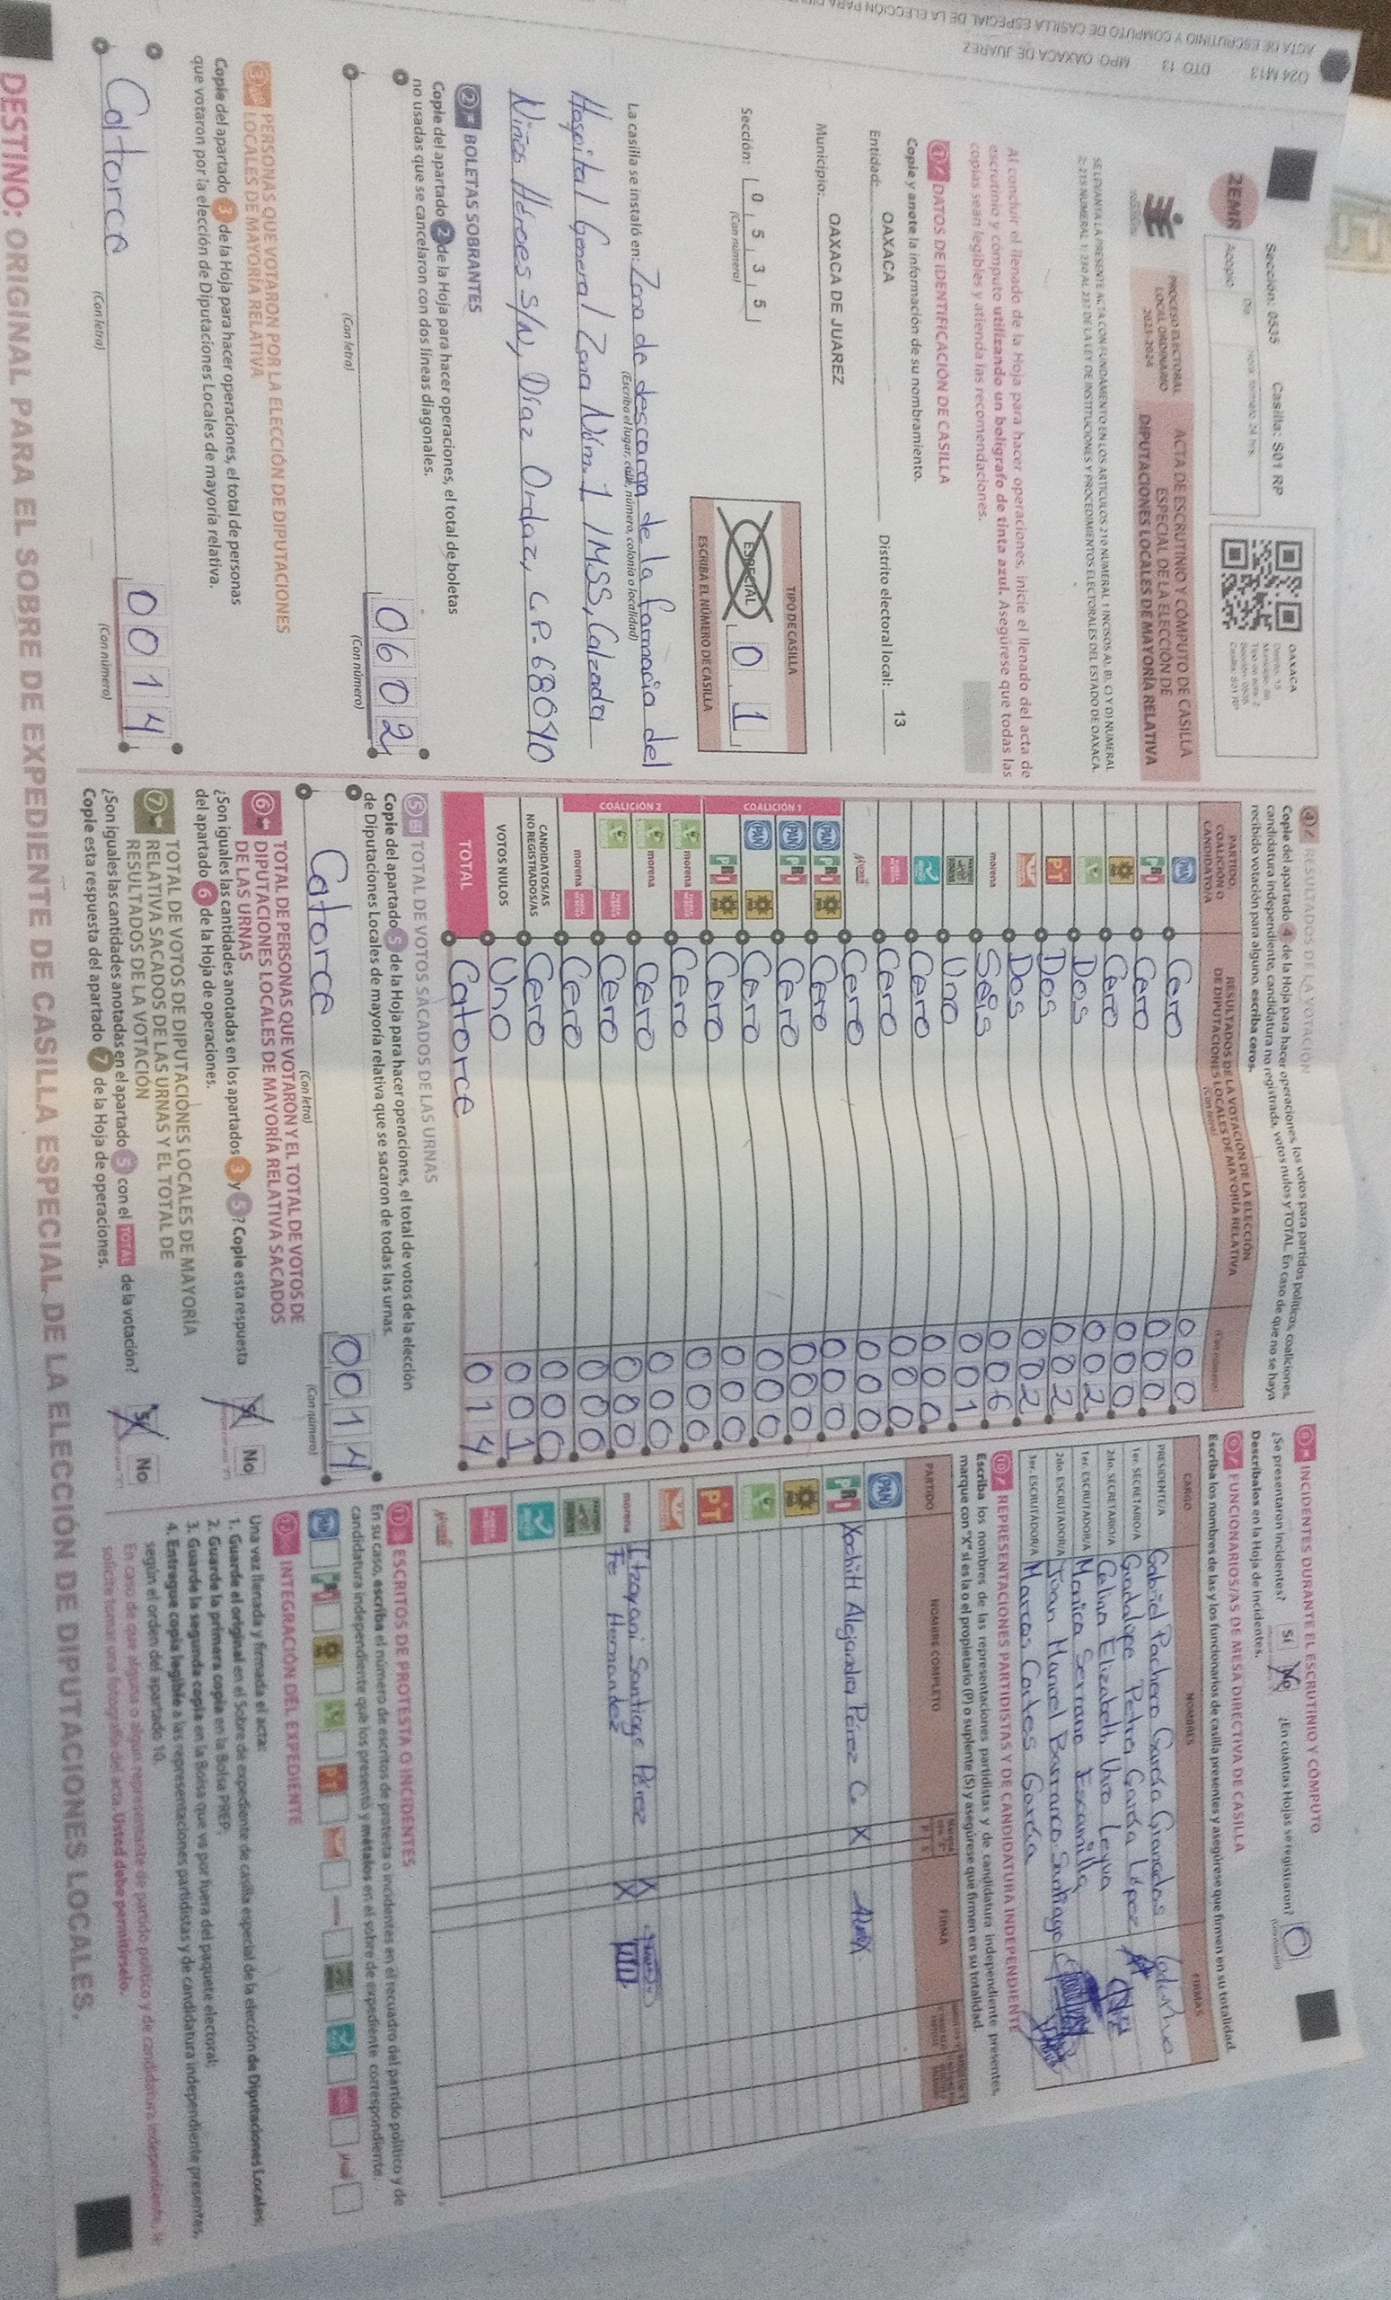 024 M13 DTO 13 MPO OAXACA DE JUAREZ
Sección: 0535 Casilla: S01 RP
2EMR
Acopio
OAXACA
PROCESO ELECTORAL
LOCAL ORDINARIO
2023-2024
ACTA DE ESCRUTINIO Y CÓMPUTO DE CASILLA
ESPECIAL DE LA ELECCIÓN DE
DIPUTACIONES LOCALES DE MAYORÍA RELATIVA
SE LEVANTA LA PRESENTE ACTA CON FUNDAMENTO EN LOS ARTÍCULOS 210 NUMERAL 1 INCISOS A), B), C) Y D) NUMERAL
2; 215 NUMERAL 1; 230 AL 237 DE LA LEY DE INSTITUCIONES Y PROCEDIMIENTOS ELECTORALES DEL ESTADO DE OAXACA.
Al concluir el llenado de la Hoja para hacer operaciones, inicie el llenado del acta de
escrutinio y cómputo utilizando un bolígrafo de tinta azul. Asegúrese que todas las
copias sean legibles y atienda las recomendaciones.
1 DATOS DE IDENTIFICACIÓN DE CASILLA
Copie y anote la información de su nombramiento.
Entidad: OAXACA Distrito electoral local: 13
Municipio: OAXACA DE JUAREZ
Sección: 0 5 3 5
(Con número)
TIPO DE CASILLA
ESPECIAL 0 1
ESCRIBA EL NÚMERO DE CASILLA
La casilla se instaló en: Zona de descarga de la farmacia del
(Escriba el lugar, calle, número, colonia o localidad)
Hospital General Zona Núm. 1 IMSS, Calzada
Niños Héroes S/N, Díaz Ordaz, C.P. 68040
2 BOLETAS SOBRANTES
Copie del apartado 2 de la Hoja para hacer operaciones, el total de boletas
no usadas que se cancelaron con dos líneas diagonales.
0602
(Con letra) (Con número)
3 PERSONAS QUE VOTARON POR LA ELECCIÓN DE DIPUTACIONES
LOCALES DE MAYORÍA RELATIVA
Copie del apartado 3 de la Hoja para hacer operaciones, el total de personas
que votaron por la elección de Diputaciones Locales de mayoría relativa.
Catorce 0014
(Con letra) (Con número)
4 RESULTADOS DE LA VOTACIÓN
Copie del apartado 4 de la Hoja para hacer operaciones, los votos para partidos políticos, coaliciones,
candidatura independiente, candidatura no registrada, votos nulos y TOTAL. En caso de que no se haya
recibido votación para alguno, escriba ceros.
PARTIDO,
COALICIÓN O
CANDIDATO/A
RESULTADOS DE LA VOTACIÓN DE LA ELECCIÓN
DE DIPUTACIONES LOCALES DE MAYORÍA RELATIVA
(Con letra)
(Con número)
PAN Cero 000
PRI Cero 000
PRD Cero 000
Dos 002
PT Dos 002
Dos 002
morena Seis 006
Uno 001
Cero 000
Cero 000
Cero 000
COALICIÓN 1
PAN PRI PRD Cero 000
PAN PRI Cero 000
PAN PRD Cero 000
PRI PRD Cero 000
COALICIÓN 2
morena Cero 000
morena Cero 000
Cero 000
morena Cero 000
CANDIDATOS/AS
NO REGISTRADOS/AS Cero 000
VOTOS NULOS Uno 001
TOTAL Catorce 014
5 TOTAL DE VOTOS SACADOS DE LAS URNAS
Copie del apartado 5 de la Hoja para hacer operaciones, el total de votos de la elección
de Diputaciones Locales de mayoría relativa que se sacaron de todas las urnas.
Catorce 0014
(Con letra) (Con número)
6 TOTAL DE PERSONAS QUE VOTARON Y EL TOTAL DE VOTOS DE
DIPUTACIONES LOCALES DE MAYORÍA RELATIVA SACADOS
DE LAS URNAS
¿Son iguales las cantidades anotadas en los apartados 3 y 5? Copie esta respuesta
del apartado 6 de la Hoja de operaciones.
Sí No
7 TOTAL DE VOTOS DE DIPUTACIONES LOCALES DE MAYORÍA
RELATIVA SACADOS DE LAS URNAS Y EL TOTAL DE
RESULTADOS DE LA VOTACIÓN
¿Son iguales las cantidades anotadas en el apartado 5 con el TOTAL de la votación?
Copie esta respuesta del apartado 7 de la Hoja de operaciones.
Sí No
8 INCIDENTES DURANTE EL ESCRUTINIO Y CÓMPUTO
¿Se presentaron incidentes? Sí No ¿En cuántas Hojas se registraron? 0
Descríbalos en la Hoja de Incidentes.
9 FUNCIONARIOS/AS DE MESA DIRECTIVA DE CASILLA
Escriba los nombres de las y los funcionarios de casilla presentes y asegúrese que firmen en su totalidad.
CARGO NOMBRES FIRMAS
PRESIDENTE/A Gabriel Pacheco García Granados
1er. SECRETARIO/A Guadalupe Petra García López
2do. SECRETARIO/A Celina Elizabeth Vivo Leyva
1er. ESCRUTADOR/A Monica Serrano Escamilla
2do. ESCRUTADOR/A Juan Manuel Barranco Santiago
3er. ESCRUTADOR/A Marcos Cortes García
10 REPRESENTACIONES PARTIDISTAS Y DE CANDIDATURA INDEPENDIENTE
Escriba los nombres de las representaciones partidistas y de candidatura independiente presentes,
marque con "X" si es la o el propietario (P) o suplente (S) y asegúrese que firmen en su totalidad.
PARTIDO NOMBRE COMPLETO FIRMA
PAN
PRI Xochitl Alejandra Pérez C. X
PRD
PT
morena Itzayani Santiago Pérez X
Fe Hernandez X
11 ESCRITOS DE PROTESTA O INCIDENTES
En su caso, escriba el número de escritos de protesta o incidentes en el recuadro del partido político y de
candidatura independiente que los presentó y métalos en el sobre de expediente correspondiente.
12 INTEGRACIÓN DEL EXPEDIENTE
Una vez llenada y firmada el acta:
1. Guarde el original en el Sobre de expediente de casilla especial de la elección de Diputaciones Locales;
2. Guarde la primera copia en la Bolsa PREP;
3. Guarde la segunda copia en la Bolsa que va por fuera del paquete electoral;
4. Entregue copia legible a las representaciones partidistas y de candidatura independiente presentes,
según el orden del apartado 10.
En caso de que alguna o algún representante de partido político y de candidatura independiente, le
solicite tomar una fotografía del acta, Usted debe permitírselo.
DESTINO: ORIGINAL PARA EL SOBRE DE EXPEDIENTE DE CASILLA ESPECIAL DE LA ELECCIÓN DE DIPUTACIONES LOCALES.